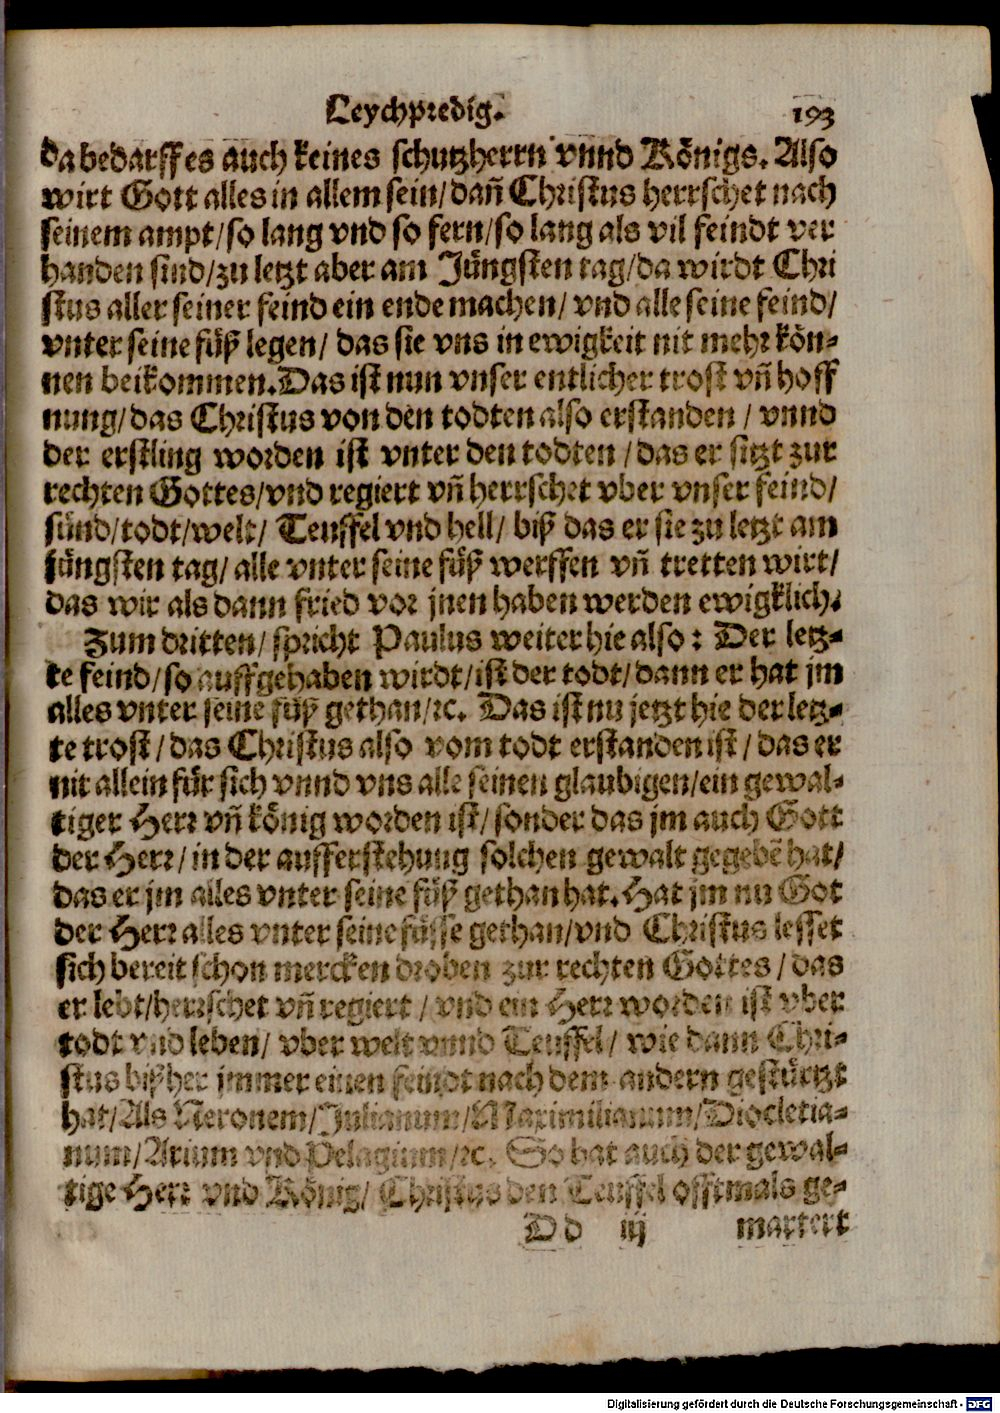 Leychpredig. 193
da bedarff es auch keines schutzherrn vnnd Königs. Also
wirt Gott alles in allem sein/ dañ Christus herrschet nach
seinem ampt/ so lang vnd so fern/ so lang als vil feindt ver
handen sind/ zu letzt aber am Jüngsten tag/ da wirdt Chri
stus aller seiner feind ein ende machen/ vnd alle seine feind/
vnter seine füß legen/ das sie vns in ewigkeit nit mehr kön-
nen beikommen. Das ist nun vnser entlicher trost vñ hoff
nung/ das Christus von den todten also erstanden / vnnd
der erstling worden ist vnter den todten / das er sitzt zur
rechten Gottes/ vnd regiert vñ herrschet vber vnser feind/
sünd/ todt/ welt/ Teuffel vnd hell/ biß das er sie zu letzt am
jüngsten tag/ alle vnter seine füß werffen vñ tretten wirt/
das wir als dann fried vor jnen haben werden ewigklich.
Zum dritten/ spricht Paulus weiter hie also: Der letz-
te feind/ so auffgehaben wirdt/ ist der todt/ dann er hat jm
alles vnter seine füß gethan/ ꝛc. Das ist nu jetzt hie der letz-
te trost / das Christus also vom todt erstanden ist / das er
nit allein für sich vnnd vns alle seinen glaubigen/ ein gewal-
tiger Herr vñ könig worden ist/ sonder das jm auch Gott
der Herr/ in der aufferstehung solchen gewalt gegebē hat/
das er jm alles vnter seine füß gethan hat. Hat jm nu Got
der Herr alles vnter seine füsse gethan/ vnd Christus lesset
sich bereit schon mercken droben zur rechten Gottes / das
er lebt/ herrschet vñ regiert / vnd ein Herr worden ist vber
todt vnd leben/ vber welt vnnd Teuffel/ wie dann Chri-
stus bißher jmmer einen feindt nach dem andern gestürtzt
hat/ Als Neronem/ Julianum/ Maximilianum/ Diocletia-
num/ Arium vnd Pelagium/ ꝛc. So hat auch der gewal-
tige Herr vnd König/ Christus den Teuffel offtmals ge-
D d iij martert
Digitalisierung gefördert durch die Deutsche Forschungsgemeinschaft - DFG